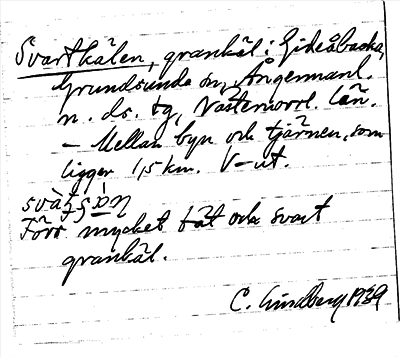 Svartkälen, grankäl i Gideåbacka,
Grundsunda sn, Ångermanl.
n. ds. tg, Västernorrl. län.
- Mellan byn och tjärnen, som
ligger 1,5 km. V-ut.
Förr mycket tät och svart
grankäl.
C. Lindberg 1939